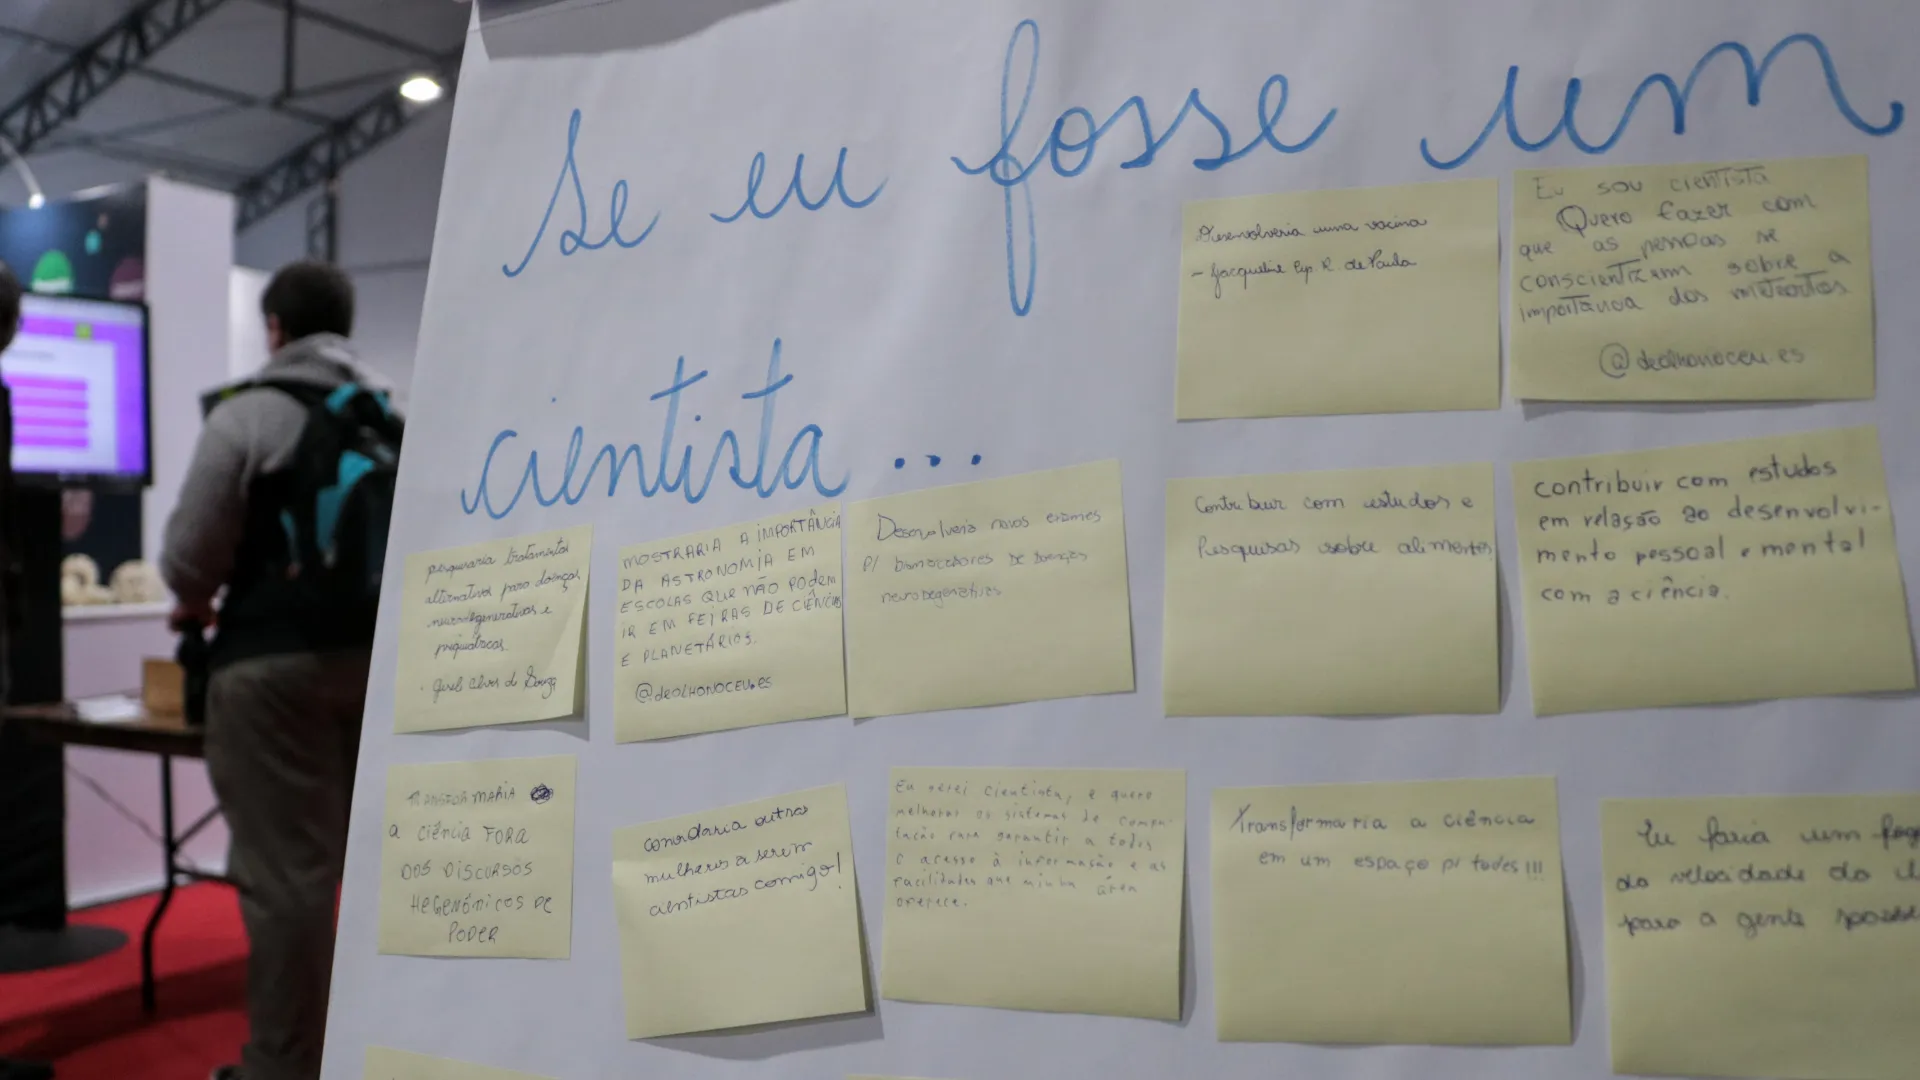 Se eu fosse um
cientista...
Desenvolveria uma vacina
- Jacqueline R. de Paula
Eu sou cientista
Quero fazer com
que as pessoas se
conscientizem sobre a
importância dos meteoritos
@deolhonoceu.es
pesquisaria tratamentos
alternativos para doenças
neurodegenerativas e
psiquiátricas.
Alves de Souza
MOSTRARIA A IMPORTÂNCIA
DA ASTRONOMIA EM
ESCOLAS QUE NÃO PODEM
IR EM FEIRAS DE CIÊNCIAS
E PLANETÁRIOS.
@deOLHONOCEU.es
Desenvolveria novos exames
P/ biomarcadores DE doenças
neurodegenerativas
Contribuir com estudos e
Pesquisas sobre alimentos
contribuir com estudos
em relação ao desenvolvi-
mento pessoal e mental
com a ciência.
TRANSFORMARIA
a CIÊNCIA FORA
DOS DISCURSOS
HEGEMÔNICOS DE
PODER
convidaria outras
mulheres a serem
cientistas comigo!
Eu serei cientista, e quero
melhorar os sistemas de compu-
tação para garantir a todos
o acesso à informação e as
facilidades que minha área
oferece.
Transformaria a ciência
em um espaço p/ todes!!!
Eu faria um
da velocidade da
para a gente